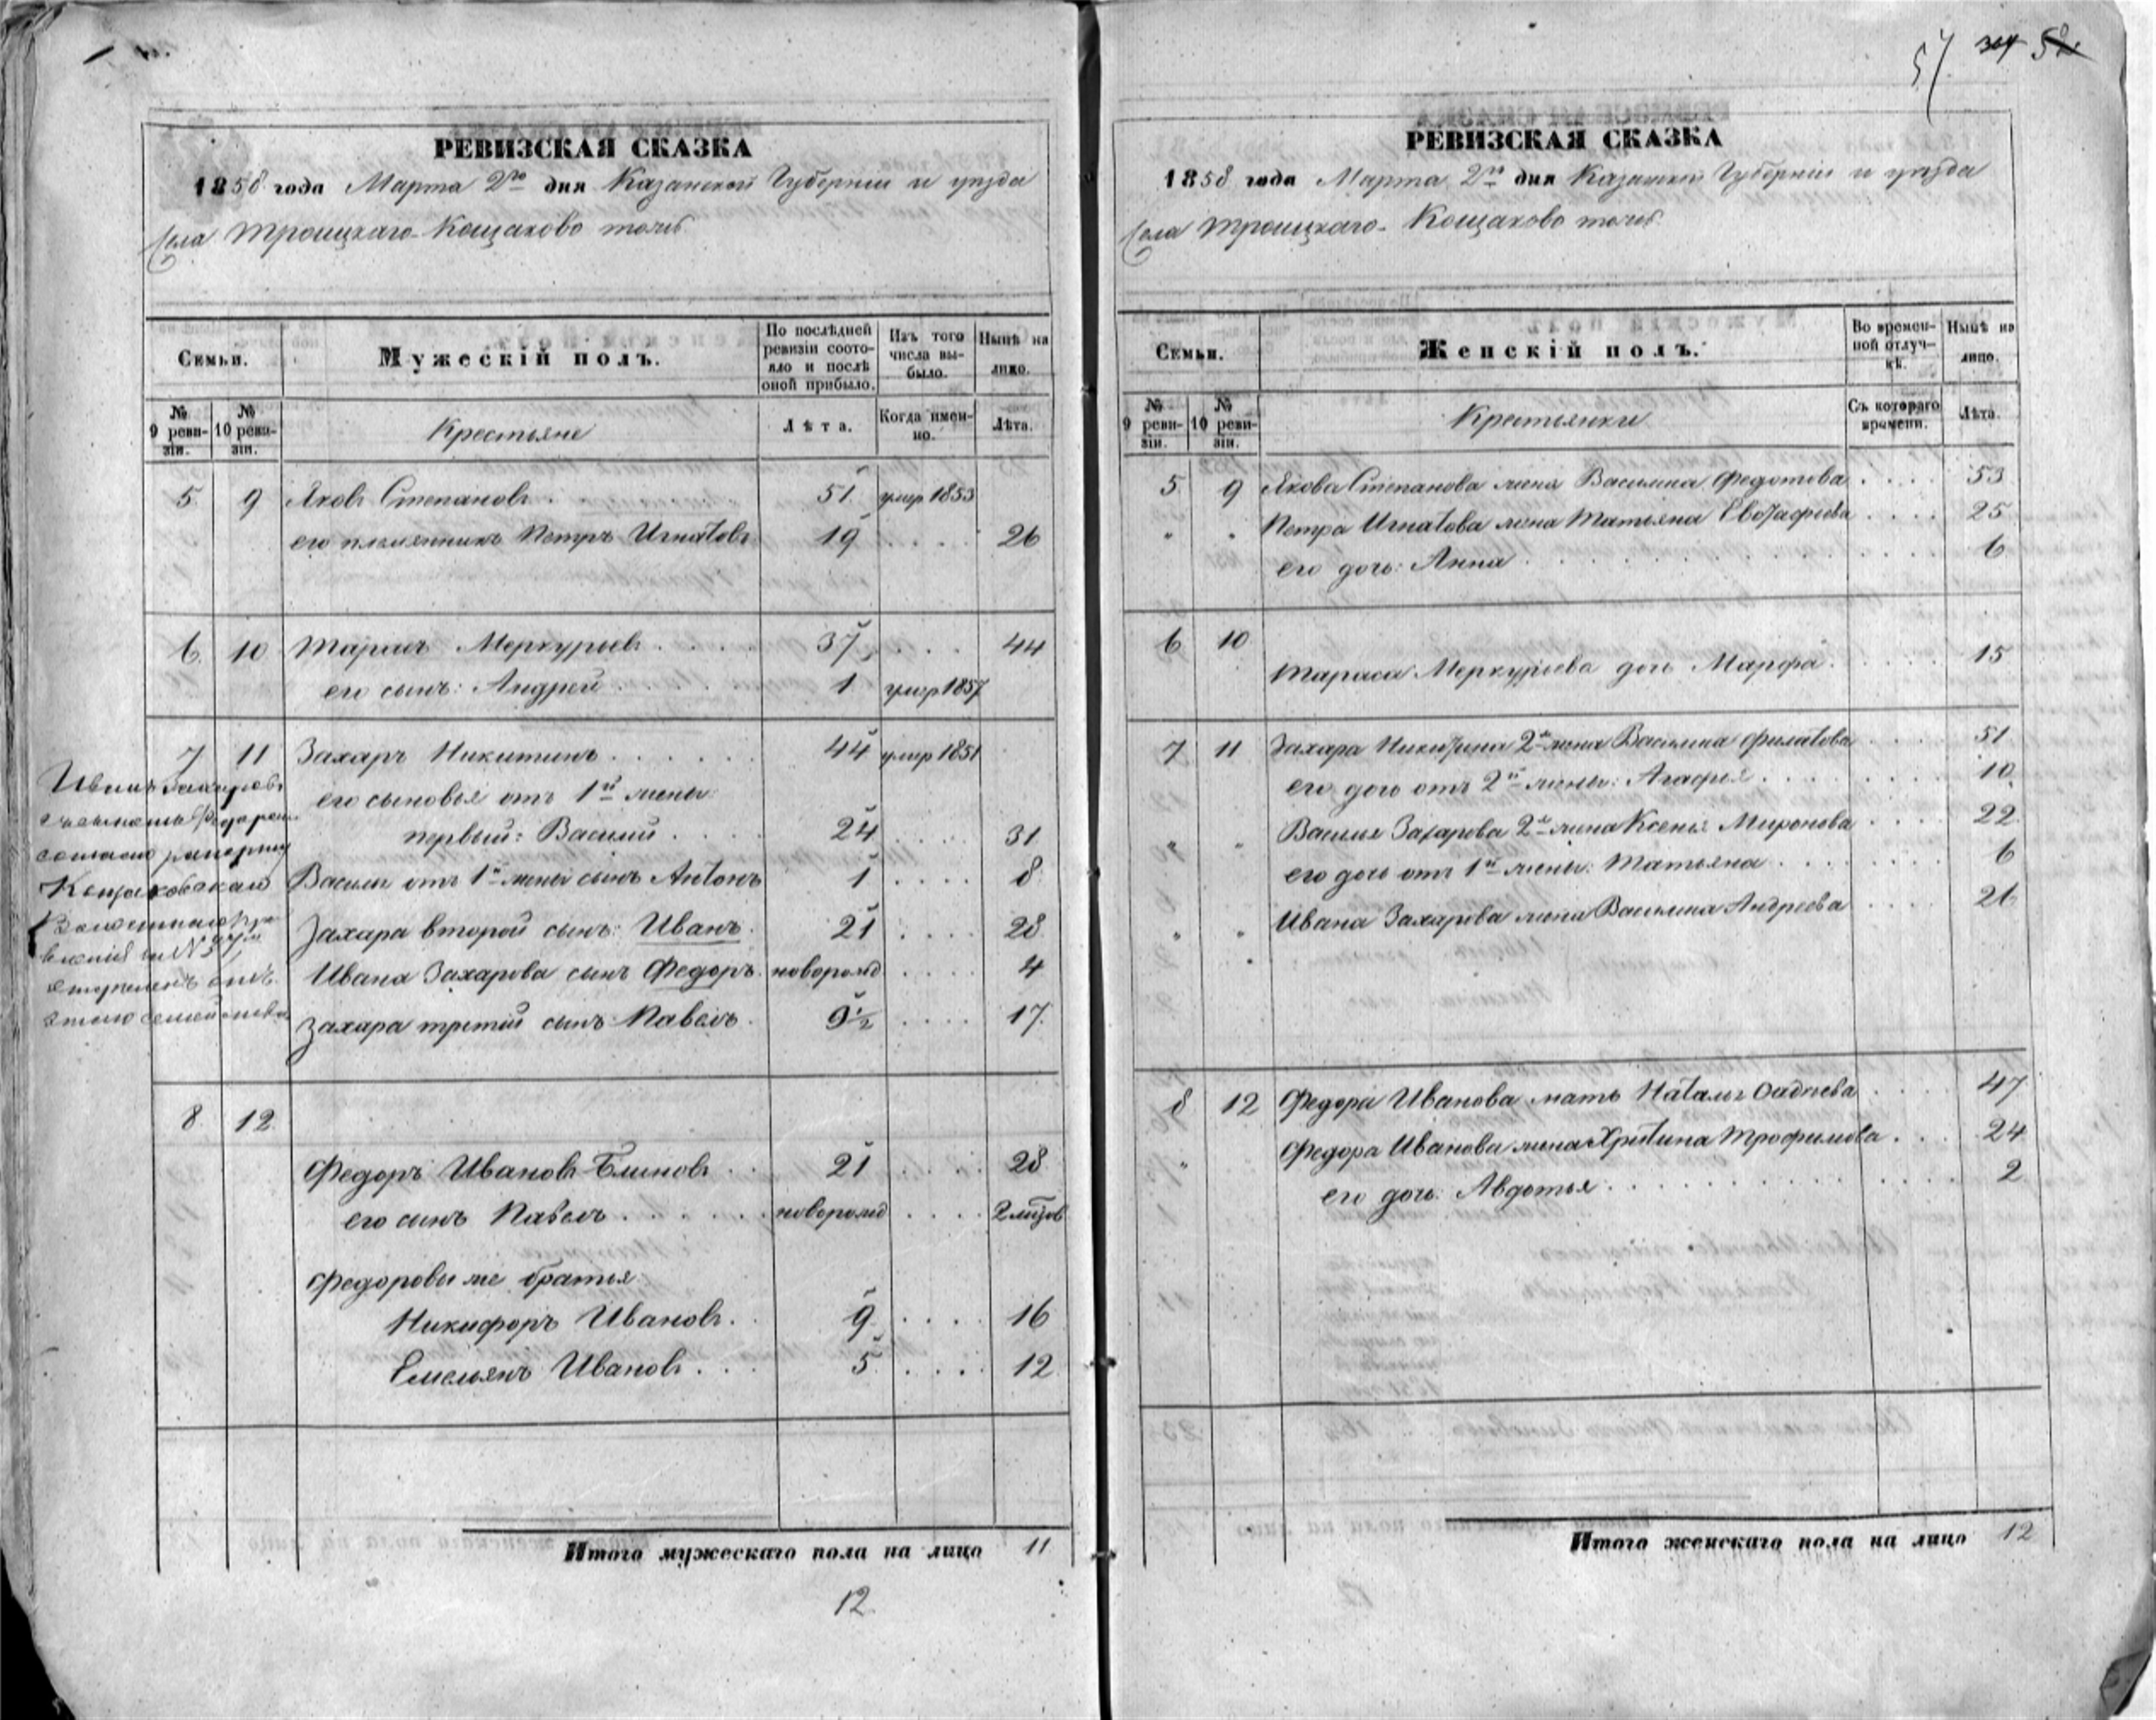 57 58
РЕВИЗСКАЯ СКАЗКА
1858 года Марта 2го дня Казанской Губернии и уезда
Села Троицкаго-Кощаково тожъ
Семьи.
Мужескій полъ.
По послѣдней ревизіи состояло и послѣ оной прибыло.
Изъ того числа выбыло.
Нынѣ на лицо.
№ 9 ревизіи.
№ 10 ревизіи.
Крестьяне
Лѣта.
Когда именно.
Лѣта.
5 9 Яковъ Степановъ 51 умер 1853
его племянникъ Петръ Игнатовъ 19 26
6 10 Тарасъ Меркурьевъ 37 44
его сынъ: Андрей 1 умер 1857
7 11 Захаръ Никитинъ 44 умер 1851
его сыновья отъ 1й жены:
первый: Василий 24 31
Василья отъ 1й жены сынъ Антонъ 1 8
Захара второй сынъ: Иванъ 21 28
Ивана Захарова сынъ Федоръ новорожд 4
Захара третий сынъ Павелъ 9½ 17
Иванъ Захаровъ
съ сыномъ Федоромъ
согласно рапорту
Кощаковскаго
Волостного Пра
вления за №
отделенъ отъ
этого семейства
8 12
Федоръ Ивановъ Блиновъ 21 28
его сынъ Павелъ новорожд 2 мцов
Федоровы же братья:
Никифоръ Ивановъ 9 16
Емельянъ Ивановъ 5 12
Итого мужескаго пола на лицо 11
12
РЕВИЗСКАЯ СКАЗКА
1858 года Марта 2го дня Казанской Губерніи и уезда
Села Троицкаго-Кощаково тожъ
Семьи.
Женскій полъ.
Во временной отлучкѣ.
Нынѣ на лицо.
№ 9 ревизіи.
№ 10 ревизіи.
Крестьянки
Съ котораго времени.
Лѣта.
5 9 Якова Степанова жена Василиса Федотова 53
" " Петра Игнатова жена Татьяна Евстафьева 25
его дочь: Анна 6
6 10
Тараса Меркурьева дочь Марфа 15
7 11 Захара Никитина 2я жена Василиса Филатова 51
его дочь отъ 2й жены: Агафья 10
" " Василья Захарова 2я жена Ксенья Миронова 22
его дочь отъ 1й жены: Татьяна 6
" " Ивана Захарова жена Василиса Андреева 26
8 12 Федора Иванова мать Наталья Фадѣева 47
" Федора Иванова жена Христина Трофимова 24
его дочь: Авдотья 2
Итого женскаго пола на лицо 12